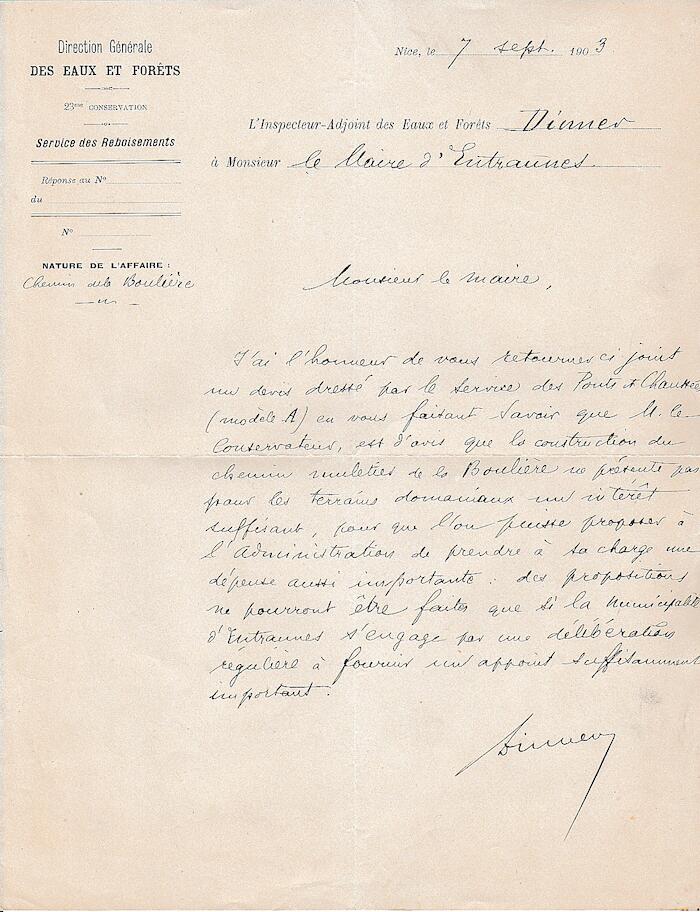 Direction Générale
DES EAUX ET FORÊTS
23ème CONSERVATION
Service des Reboisements
Réponse au No
du
No
NATURE DE L'AFFAIRE :
Chemin de la Boulière
Nice, le 7 sept. 1903
L'Inspecteur-Adjoint des Eaux et Forêts
à Monsieur le Maire d'Entraunes
Monsieur le maire,
J'ai l'honneur de vous retourner ci joint
un devis dressé par le service des Ponts et Chaussées
(modèle A) en vous faisant savoir que M. le
Conservateur, est d'avis que la construction du
chemin muletier de la Boulière ne présente pas
pour les terrains domaniaux un intérêt
suffisant, pour que l'on puisse proposer à
l'Administration de prendre à sa charge une
dépense aussi importante : des propositions
ne pourront être faites que si la municipalité
d'Entraunes s'engage par une délibération
régulière à fournir un appoint suffisamment
important.